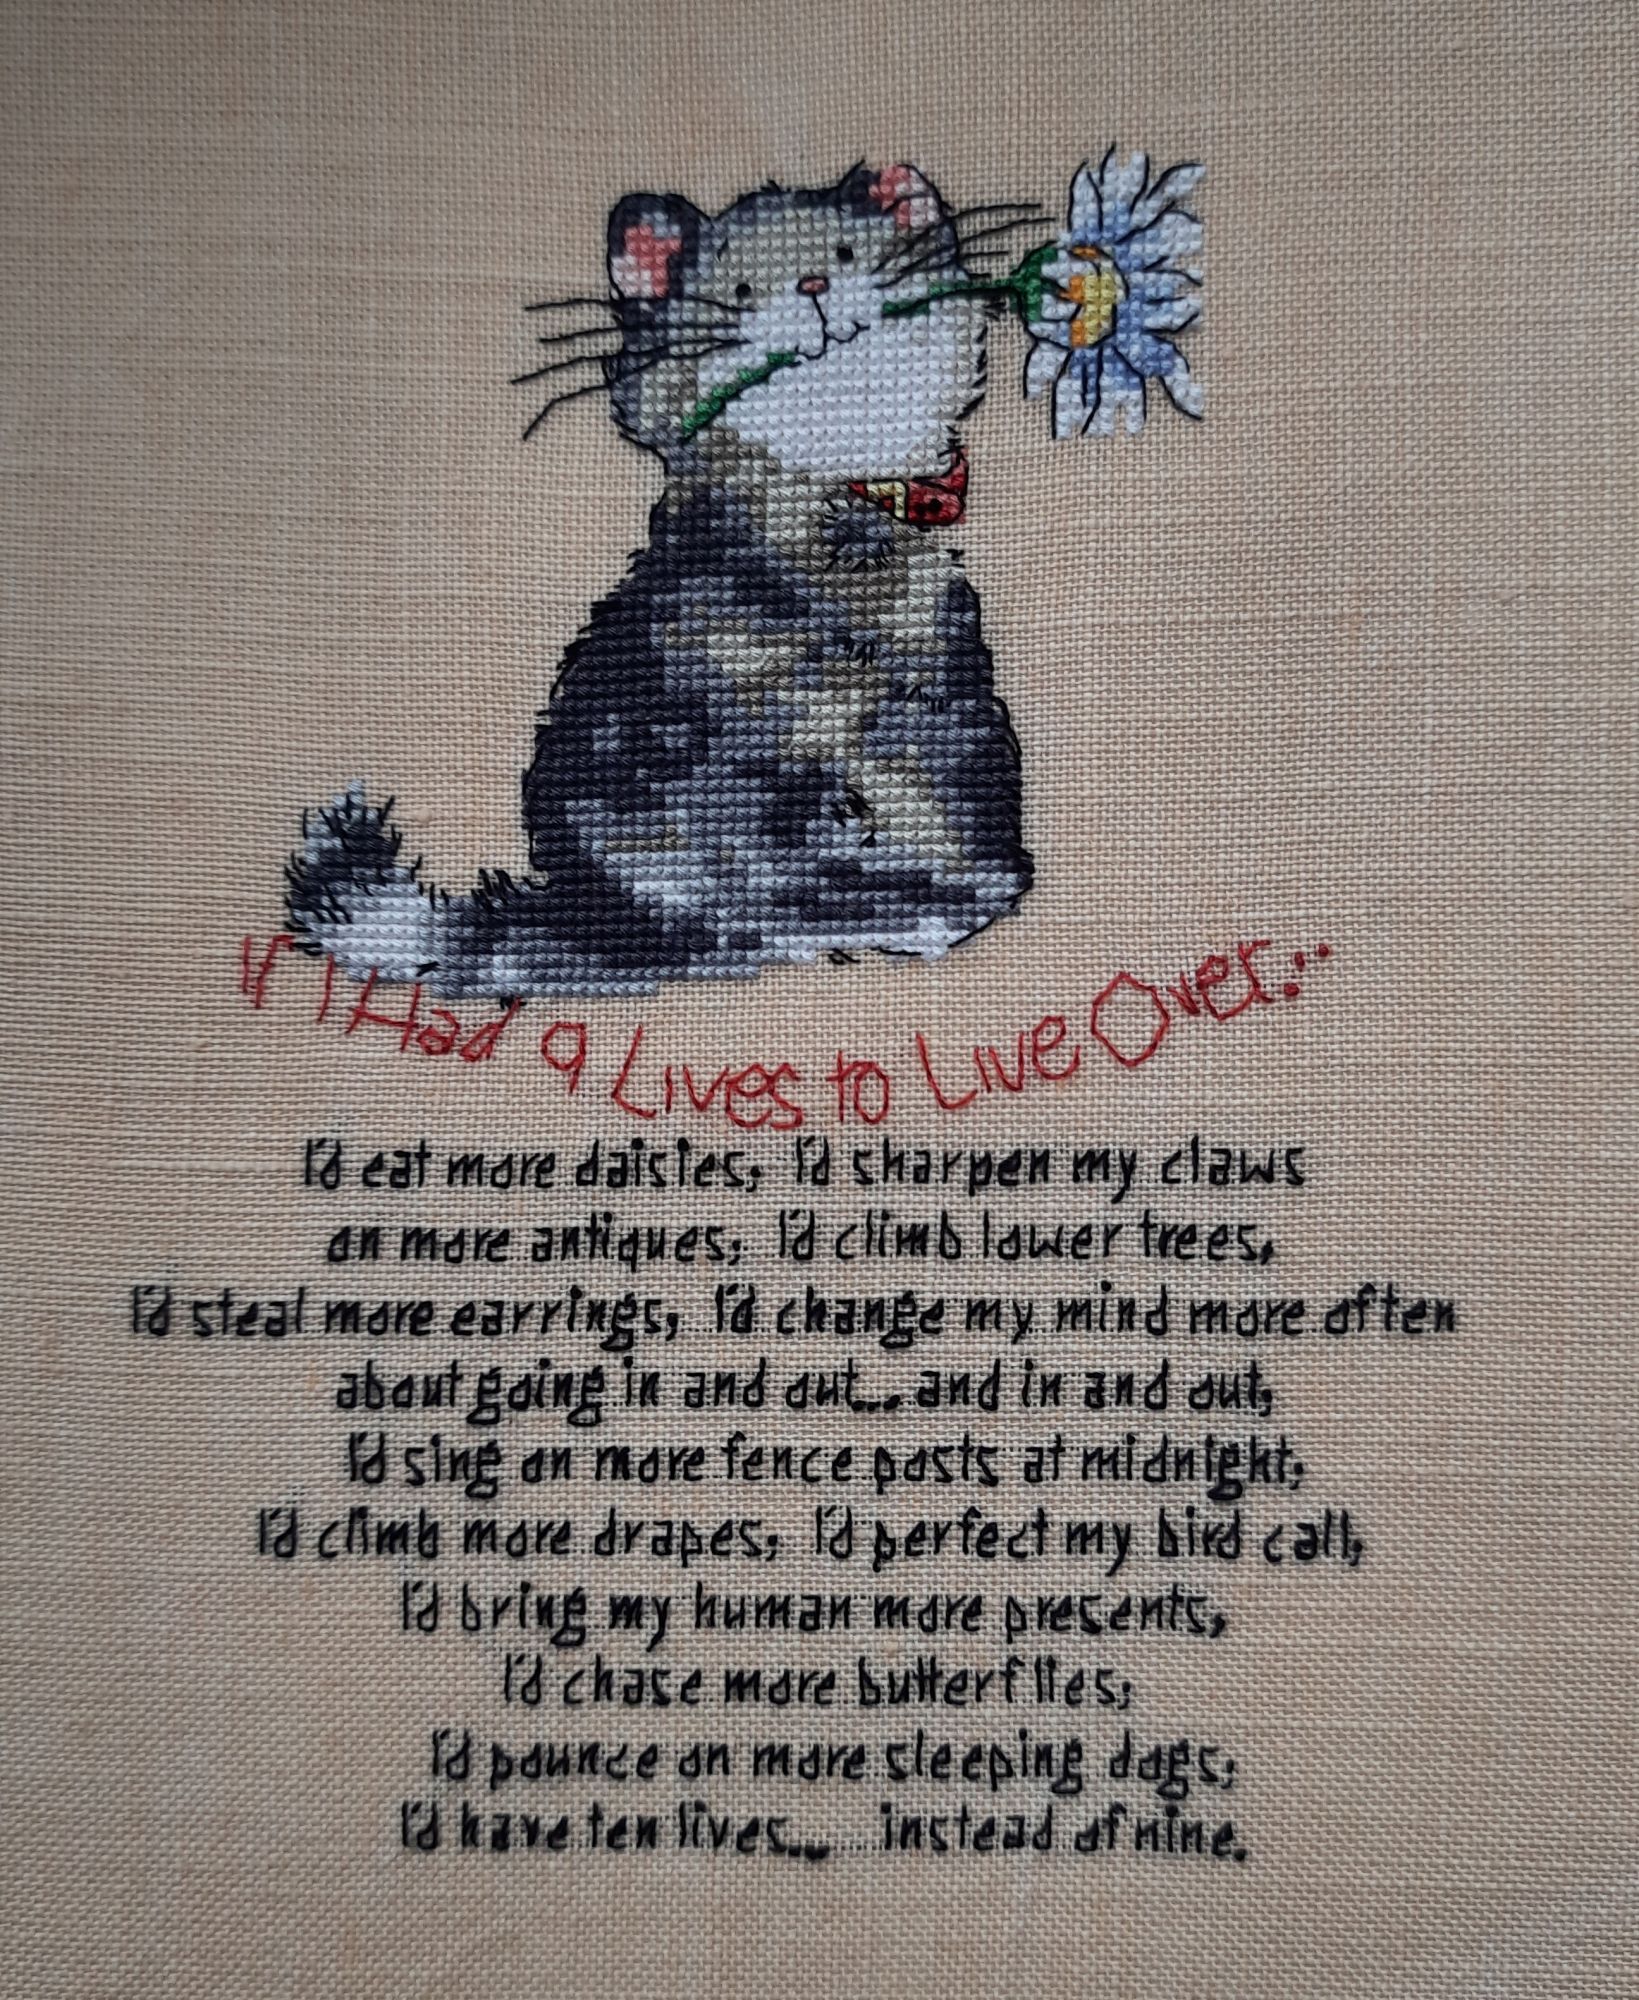 If I Had 9 Lives to Live Over...
I'd eat more daisies, I'd sharpen my claws
on more antiques, I'd climb lower trees,
I'd steal more earrings, I'd change my mind more often
about going in and out... and in and out,
I'd sing on more fence posts at midnight,
I'd climb more drapes, I'd perfect my bird call,
I'd bring my human more presents,
I'd chase more butterflies,
I'd pounce on more sleeping dogs,
I'd have ten lives... instead of nine.